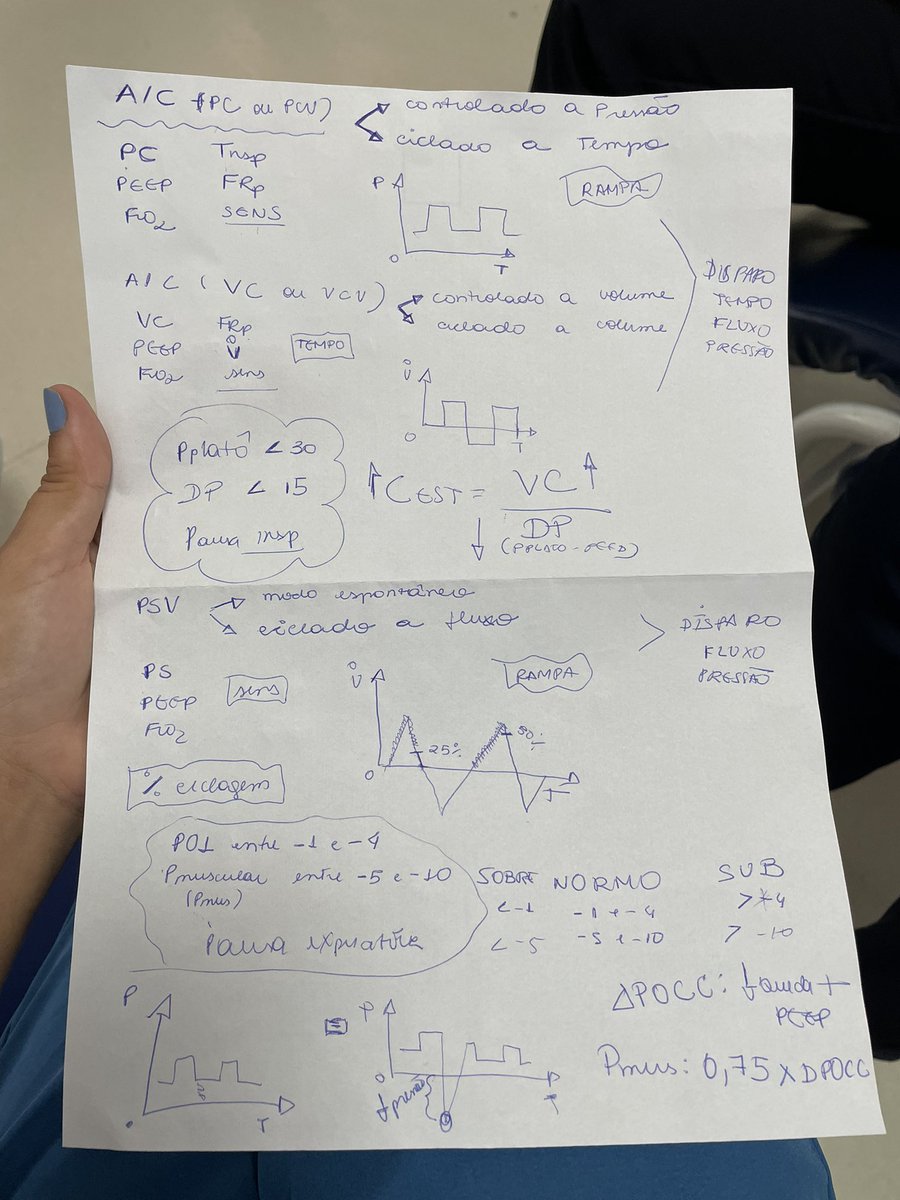 A/C (PC ou PCV)
controlado a Pressão
ciclado a Tempo
PC Tinsp
PEEP FRp
FiO2 SENS
P
0
T
RAMPA
A/C (VC ou VCV)
controlado a volume
ciclado a volume
VC FRp
PEEP V̇
FiO2 sens
TEMPO
V̇
0
T
DISPARO
TEMPO
FLUXO
PRESSÃO
Pplatô < 30
DP < 15
Pausa insp
↑CEST = VC↑
↓ DP
(PPLATO - PEEP)
PSV
modo espontâneo
ciclado a fluxo
DISPARO
FLUXO
PRESSÃO
PS
PEEP
FiO2
sens
RAMPA
V̇
25%
50%
0
T
% ciclagem
P01 entre -1 e -4
Pmuscular entre -5 e -10
(Pmus)
Pausa expiratória
SOBRE NORMO SUB
< -1 -1 e -4 > -4
< -5 -5 e -10 > -10
P
T
P
0
T
ΔPOCC:
PEEP
Pmus: 0,75 x DPOCC